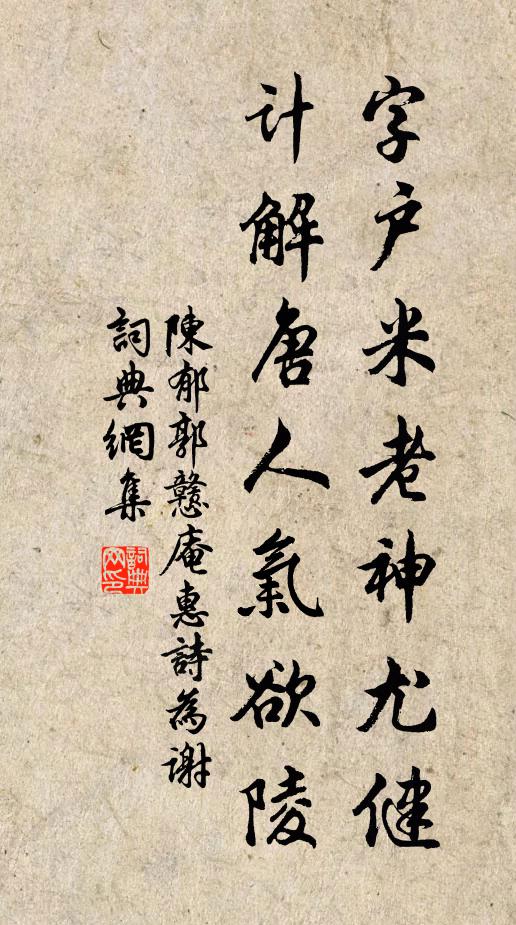 字户米老神尤健
计解唐人氣欲陵
陳郁郭戇庵惠詩為謝
詞典網集
詞典網印